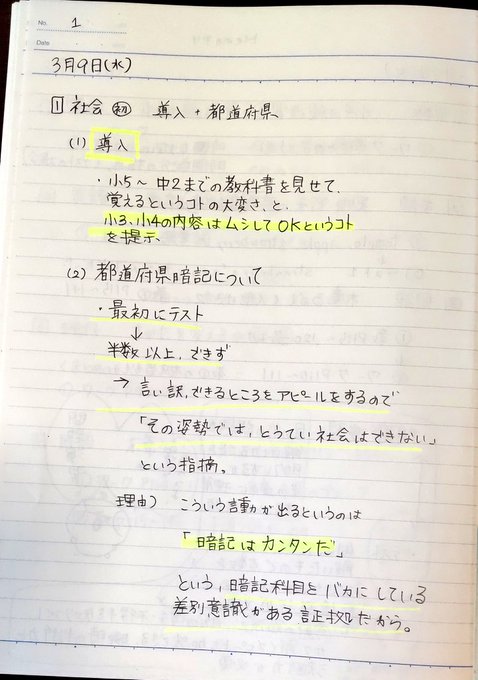 No. 1
Date
3月9日(水)
1 社会 初 導入+都道府県
(1) 導入
・小5〜中2までの教科書を見せて、
覚えるというコトの大変さ、と、
小3、小4の内容はムシしてOKというコト
を提示、
(2) 都道府県暗記について
・最初にテスト
↓
半数以上、できず
→ 言い訳、できるところをアピールをするので
「その姿勢では、とうてい社会はできない」
という指摘。
理由) こういう言動が出るというのは
「暗記はカンタンだ」
という、暗記科目をバカにしている
差別意識がある証拠だから。